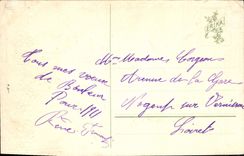 Tous mes vœux
de Bonheur
Pour 1911
Mme Madame
Avenue de la Gare
Nogent sur Vernisson
Loiret